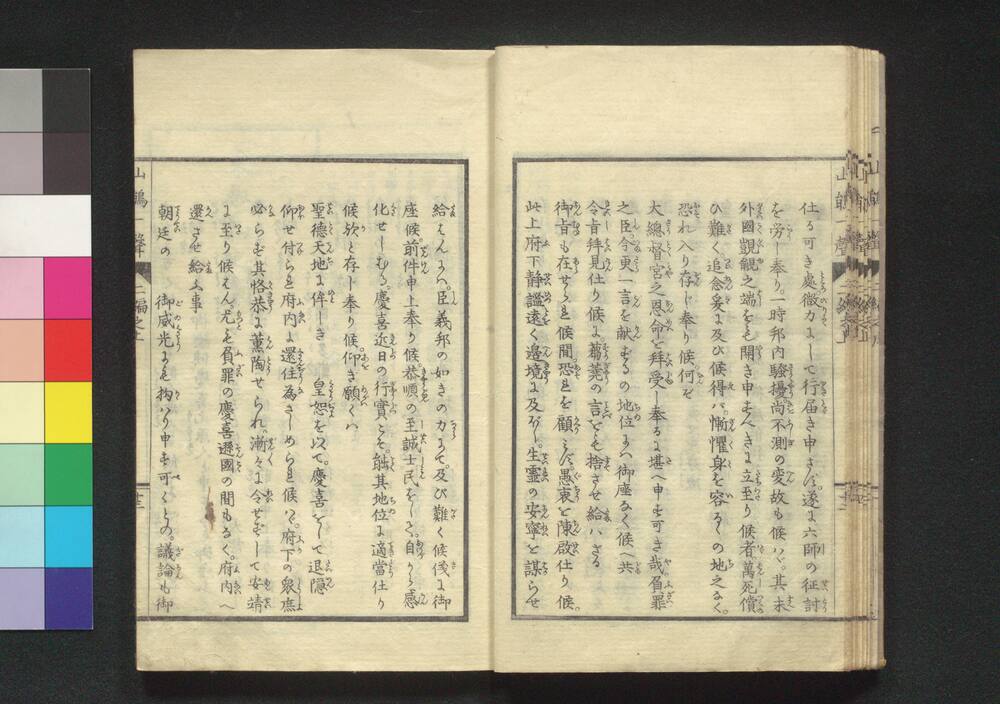 仕る可き處微力にして行届き申さず。遂に六師の征討
を労し奉り。一時邦内騒擾尚不測の変故も候ハヾ。其末
外國覬覦之端をも開き申すべきに立至り候者萬死償
ひ難く追念爰に及び候得バ。慚懼身を容るゝの地之なく。
恐れ入り存じ奉り候何ぞ
大總督宮之恩命を拜受し奉るに堪へ申す可き哉負罪
之臣今更一言を献ずるの地位にハ御座なく候へ共
令旨拜見仕り候に蒭蕘の言をも捨させ給ハざる
御旨も在せられ候間恐を顧ミず。愚衷を陳啟仕り候。
此上府下静謐遠く邊境に及ぼし。生霊の安寧を謀らせ
給はんにハ。臣義邦の如きの力にて。及び難く候儀に御
座候前件申上奉り候恭順の至誠士民をして。自から感
化せしむる。慶喜近日の行實こそ。能其地位に適當仕り
候歟と存じ奉り候。仰き願くハ
聖德天地に侔しき　皇恕を以て。慶喜をして退隠
仰せ付られ府内に還住為さしめられ候ハヾ。府下の衆庶
必らず其恪恭に薫陶せられ。漸々に令せずして安靖
に至り候はん。尤も負罪の慶喜遜國の間もなく。府内へ
還させ給ふ事
朝廷の　御威光にも拘ハり申す可くとの。議論も御
山鵲一聲　二編之上　廿三